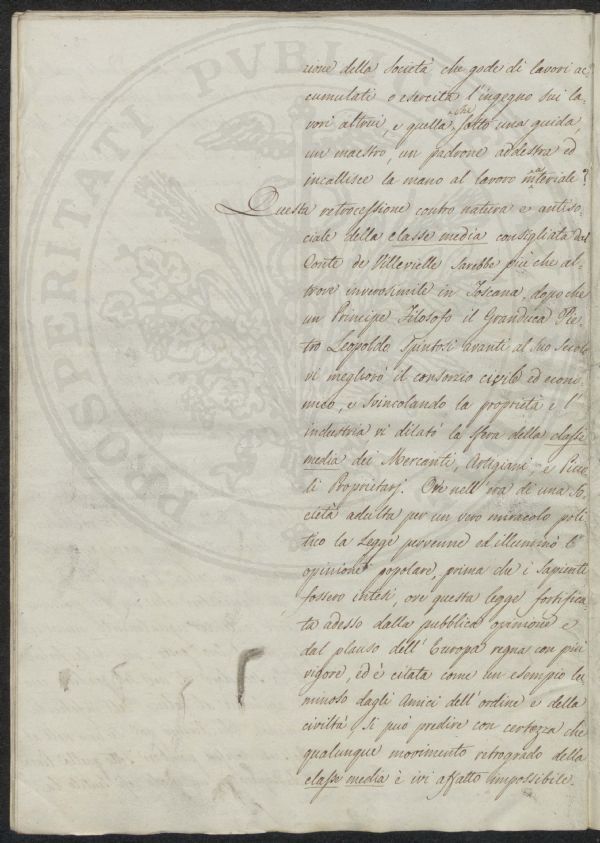 zione della Società che gode di lavori ac
cumulati o esercita l'ingegno sui la,
vori altrui, e quella, che sotto una guida,
un maestro, un padrone addestra ed
incallisce la mano al lavoro materiale?
Questa retrocessione contro natura e antiso,
ciale della classe media consigliata dal
Conte de Villevielle sarebbe più che al,
trove inverosimile in Toscana, dopo che
un Principe Filosofo il Granduca Pie,
tro Leopoldo spintosi avanti al suo secolo
vi megliorò il consorzio civile ed econo,
mico, e svincolando la proprietà e l'
industria vi dilatò la sfera della classe
media dei Mercanti, Artigiani e Picco,
li Proprietarj. Ove nell'era di una So,
cietà adulta per un vero miracolo poli,
tico la Legge prevenne ed illuminò l'
opinione popolare, prima che i Sapienti
fossero intesi, ove questa legge fortifica
ta adesso dalla pubblica opinione e
dal plauso dell'Europa regna con più
vigore, ed è citata come un esempio lu
minoso dagli Amici dell'ordine e della
civiltà si può predire con certezza che
qualunque movimento retrogrado della
classe media è ivi affatto impossibile.
PROSPERITATI PVBLI